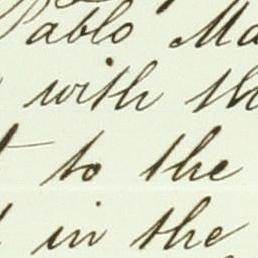 Pablo Ma
with th
to the
in the